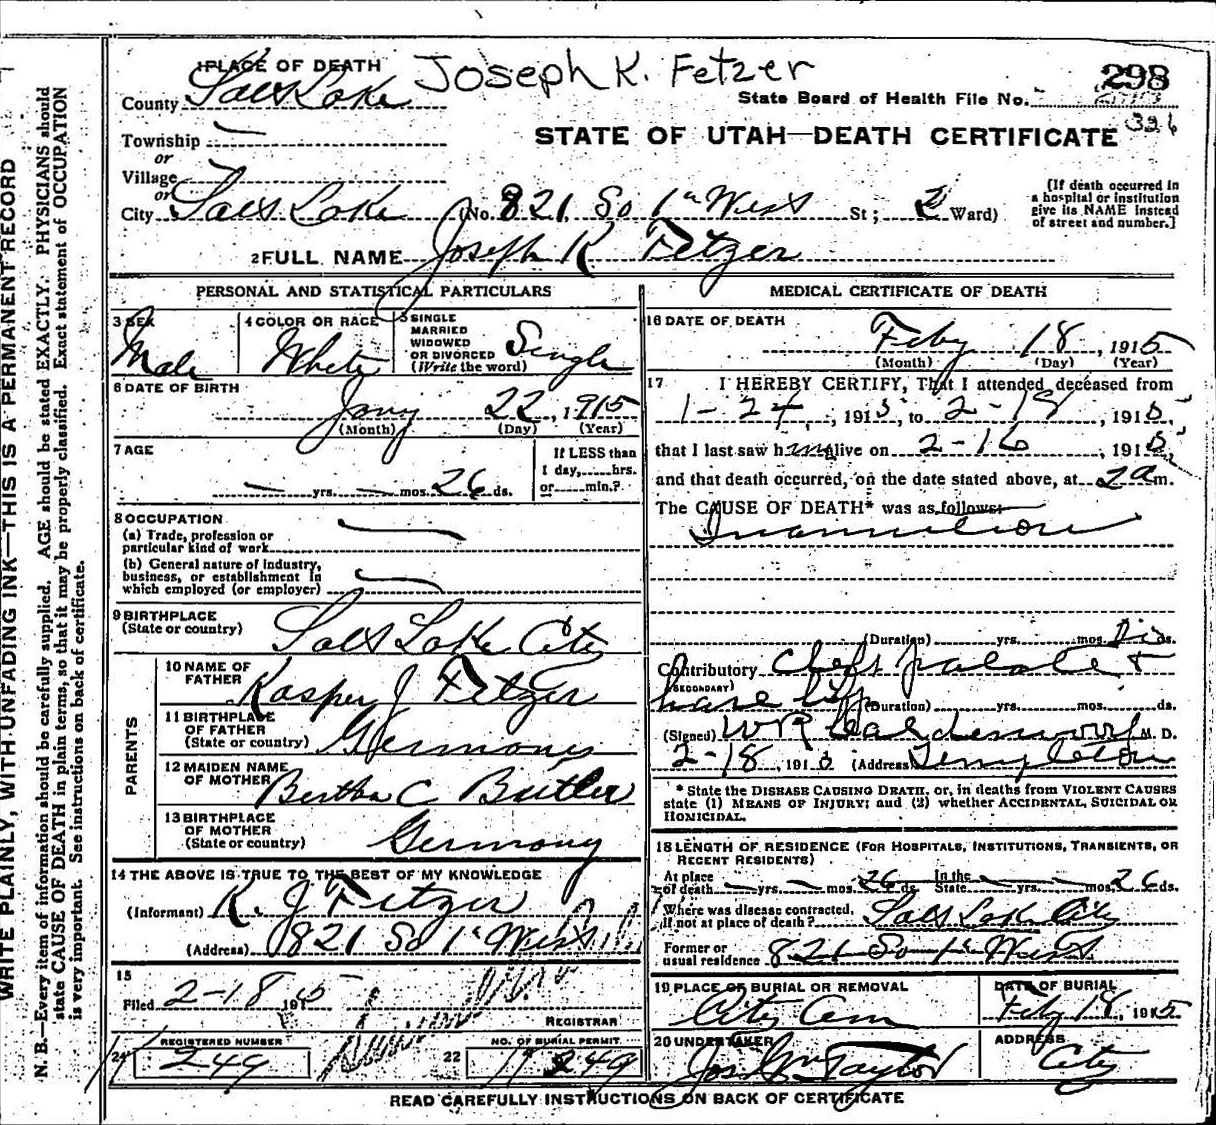 1 PLACE OF DEATH
Joseph K. Fetzer
298
County Salt Lake
State Board of Health File No.
326
Township —
STATE OF UTAH—DEATH CERTIFICATE
or
Village
or
City Salt Lake (No. 821 So 1st West St; 2 Ward)
[If death occurred in a hospital or institution give its NAME instead of street and number.]
2 FULL NAME Joseph K Fetzer
PERSONAL AND STATISTICAL PARTICULARS
3 SEX
Male
4 COLOR OR RACE
White
5 SINGLE
MARRIED
WIDOWED
OR DIVORCED
(Write the word)
Single
6 DATE OF BIRTH
Jany 22, 1915
(Month) (Day) (Year)
7 AGE
— yrs. — mos. 26 ds.
If LESS than
1 day, hrs.
or min.?
8 OCCUPATION
(a) Trade, profession or
particular kind of work
(b) General nature of industry,
business, or establishment in
which employed (or employer)
9 BIRTHPLACE
(State or country) Salt Lake City
PARENTS
10 NAME OF
FATHER Kasper J Fetzer
11 BIRTHPLACE
OF FATHER
(State or country) Germany
12 MAIDEN NAME
OF MOTHER Bertha C Butler
13 BIRTHPLACE
OF MOTHER
(State or country) Germany
14 THE ABOVE IS TRUE TO THE BEST OF MY KNOWLEDGE
(Informant) K. J Fetzer
(Address) 821 So 1st West
15
Filed 2-18 1915
REGISTRAR
21
REGISTERED NUMBER
249
22
NO. OF BURIAL PERMIT
249
MEDICAL CERTIFICATE OF DEATH
16 DATE OF DEATH
Feby 18, 1915
(Month) (Day) (Year)
17 I HEREBY CERTIFY, That I attended deceased from
1-24, 1915, to 2-18, 1915,
that I last saw him alive on 2-16, 1915,
and that death occurred, on the date stated above, at 2 a m.
The CAUSE OF DEATH* was as follows:
Inanition
(Duration) yrs. mos. ds.
Contributory Cleft palate +
(SECONDARY)
hare lip (Duration) yrs. mos. ds.
(Signed) W R Calderwood M. D.
2-18, 1915 (Address) Templeton
* State the DISEASE CAUSING DEATH, or, in deaths from VIOLENT CAUSES
state (1) MEANS OF INJURY; and (2) whether ACCIDENTAL, SUICIDAL OR
HOMICIDAL.
18 LENGTH OF RESIDENCE (FOR HOSPITALS, INSTITUTIONS, TRANSIENTS, OR
RECENT RESIDENTS)
At place
of death — yrs. — mos. 26 ds. In the State — yrs. — mos. 26 ds.
Where was disease contracted,
if not at place of death? Salt Lake City
Former or
usual residence 821 So 1st West
19 PLACE OF BURIAL OR REMOVAL
City Cem
DATE OF BURIAL
Feby 18, 1915
20 UNDERTAKER
Jos Wm Taylor
ADDRESS
City
READ CAREFULLY INSTRUCTIONS ON BACK OF CERTIFICATE
WRITE PLAINLY, WITH UNFADING INK—THIS IS A PERMANENT RECORD
N. B.—Every item of information should be carefully supplied. AGE should be stated EXACTLY. PHYSICIANS should
state CAUSE OF DEATH in plain terms, so that it may be properly classified. Exact statement of OCCUPATION
is very important. See instructions on back of certificate.